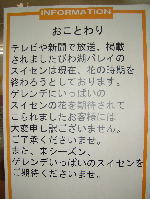 INFORMATION
おことわり
テレビや新聞で放送、掲載
されましたびわ湖バレイの
スイセンは現在、花の時期を
終わろうとしております。
ゲレンデにいっぱいの
スイセンの花を期待されて
こられましたお客様には
大変申し訳ございません。
ご了承くださいませ。
また、来シーズン、
ゲレンデいっぱいのスイセンを
ご期待くださいませ。